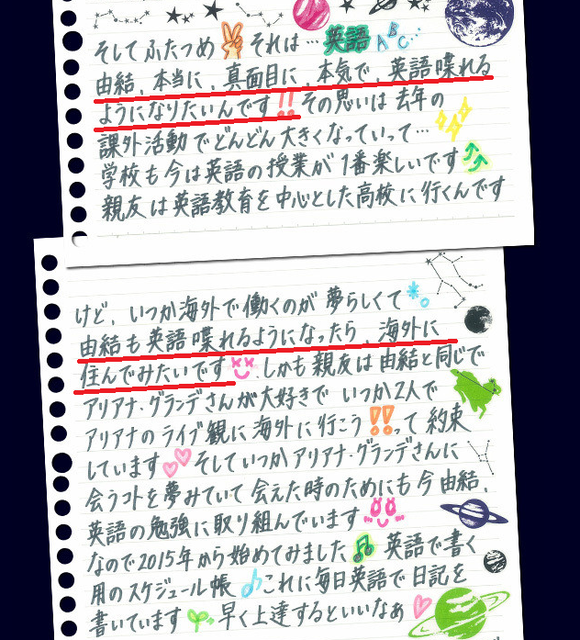 そしてふたつめ✌それは…英語ABC…
由結、本当に、真面目に、本気で、英語喋れる
ようになりたいんです!!その思いは去年の
課外活動でどんどん大きくなっていって…
学校も今は英語の授業が1番楽しいです
親友は英語教育を中心とした高校に行くんです
けど、いつか海外で働くのが夢らしくて
由結も英語喋れるようになったら、海外に
住んでみたいです しかも親友は由結と同じで
アリアナ・グランデさんが大好きで いつか2人で
アリアナのライブ観に海外に行こう!!って約束
しています♡♡そしていつかアリアナ・グランデさんに
会うコトを夢みていて会えた時のためにも今由結、
英語の勉強に取り組んでいます
なので2015年から始めてみました♫英語で書く
用のスケジュール帳♪これに毎日英語で日記を
書いています 早く上達するといいなぁ♡